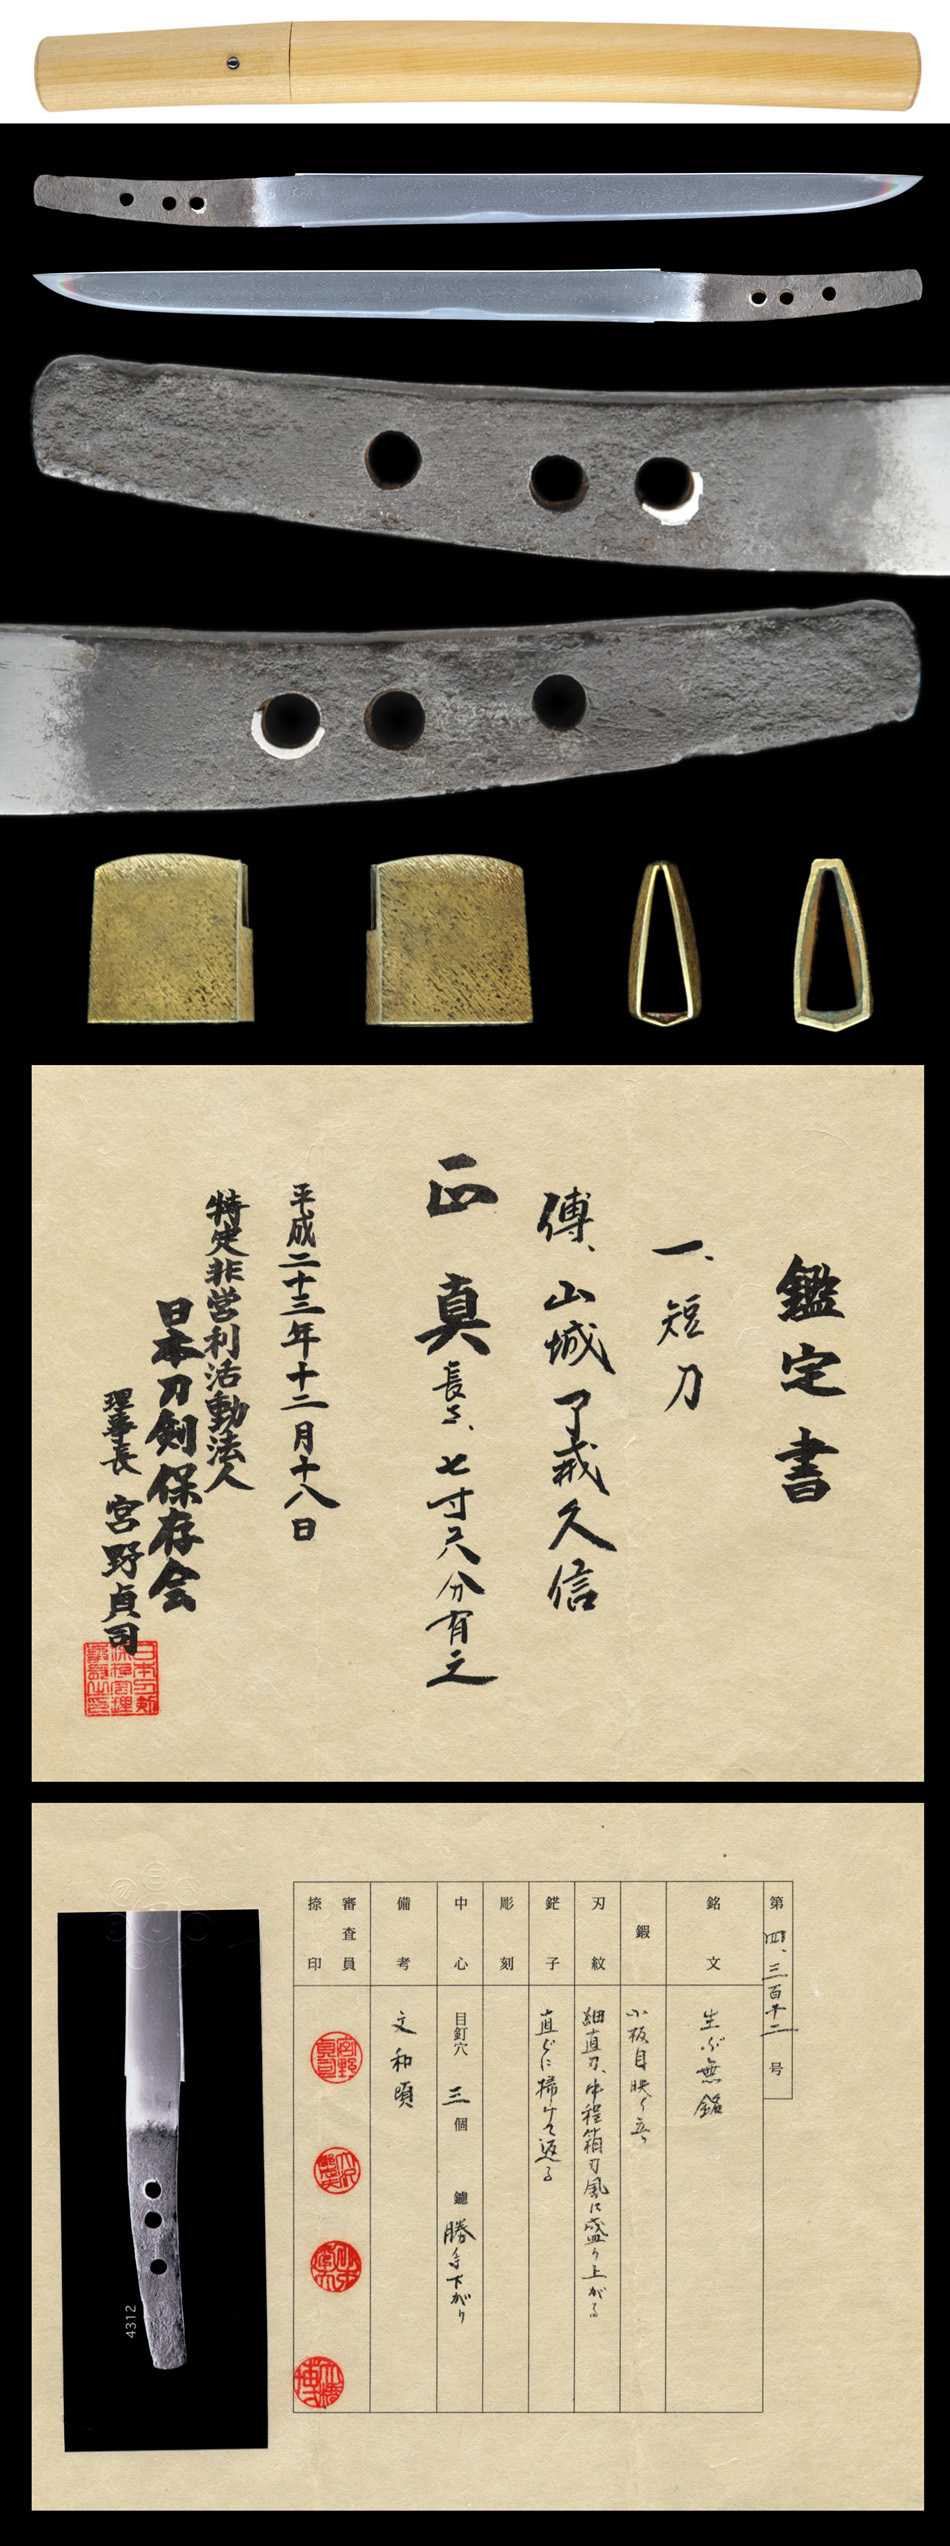 鑑定書
一、短刀
傳、山城了戒久信
正真
長さ、七寸尺分有之
平成二十三年十二月十八日
特定非営利活動法人
日本刀剣保存会
理事長 宮野貞司
第四、三百十二号
銘文
生ぶ無銘
鍜
小板目映り立つ
刃紋
細直刃、中程箱刃風に盛り上がる
鋩子
直ぐに掃けて返る
彫刻
中心
目釘穴 三個 鑢 勝手下がり
備考
文和頃
審査員
捺印
4312